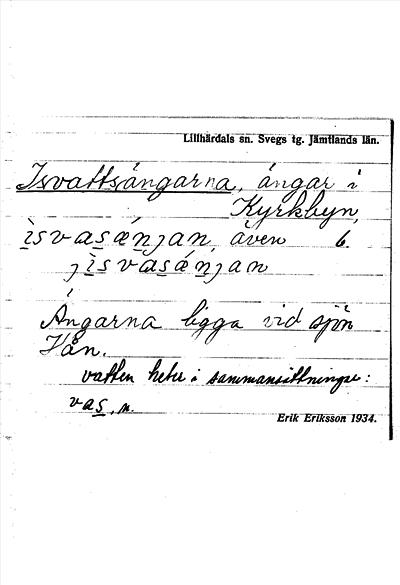 Lillhärdals sn. Svegs tg. Jämtlands län.
Isvattsängarna, ängar i
Kyrkbyn,
ìsvasæ̀njan, även 6.
jìsvasǽnjan
Ängarna ligga vid sjön
Vån.
vatten heter i sammansättningar:
vas, n.
Erik Eriksson 1934.